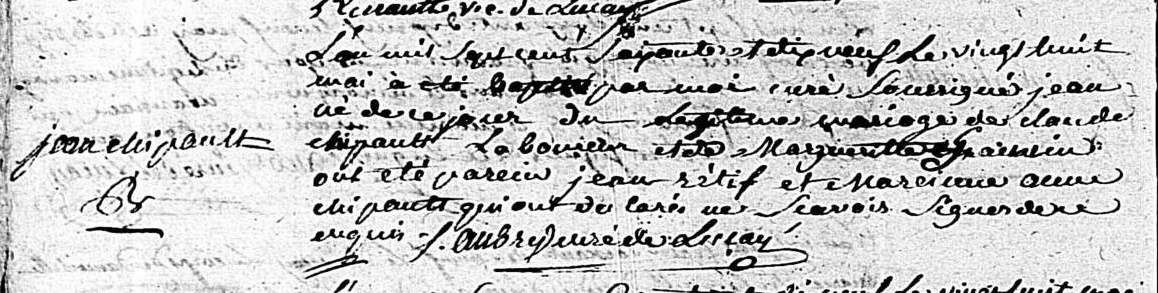 vic. de Lucay
L'an mil sept cent soixante et dix neuf le vingt huit
mai à été baptisé par moi curé soussigné jean
né de ce jour du legitime mariage de claude
chipault laboureur et de Marguerite
jean chipault
ont été parein jean rétif et Marianne anne
chipault qui ont declaré ne scavoir signer de ce
enquis f. aubry curé de Lucay